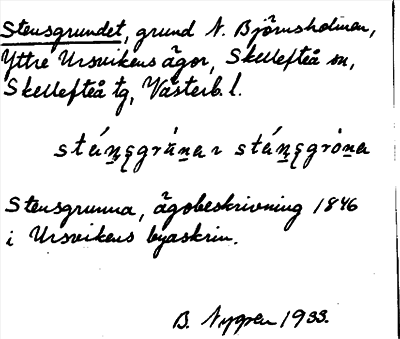 Stensgrundet, grund N. Björnsholmen,
Yttre Ursvikens ägor, Skellefteå sn,
Skellefteå tg, Västerb. l.
Stensgrunna, ägobeskrivning 1846
i Ursvikens byaskrin.
B. Nygren 1933.